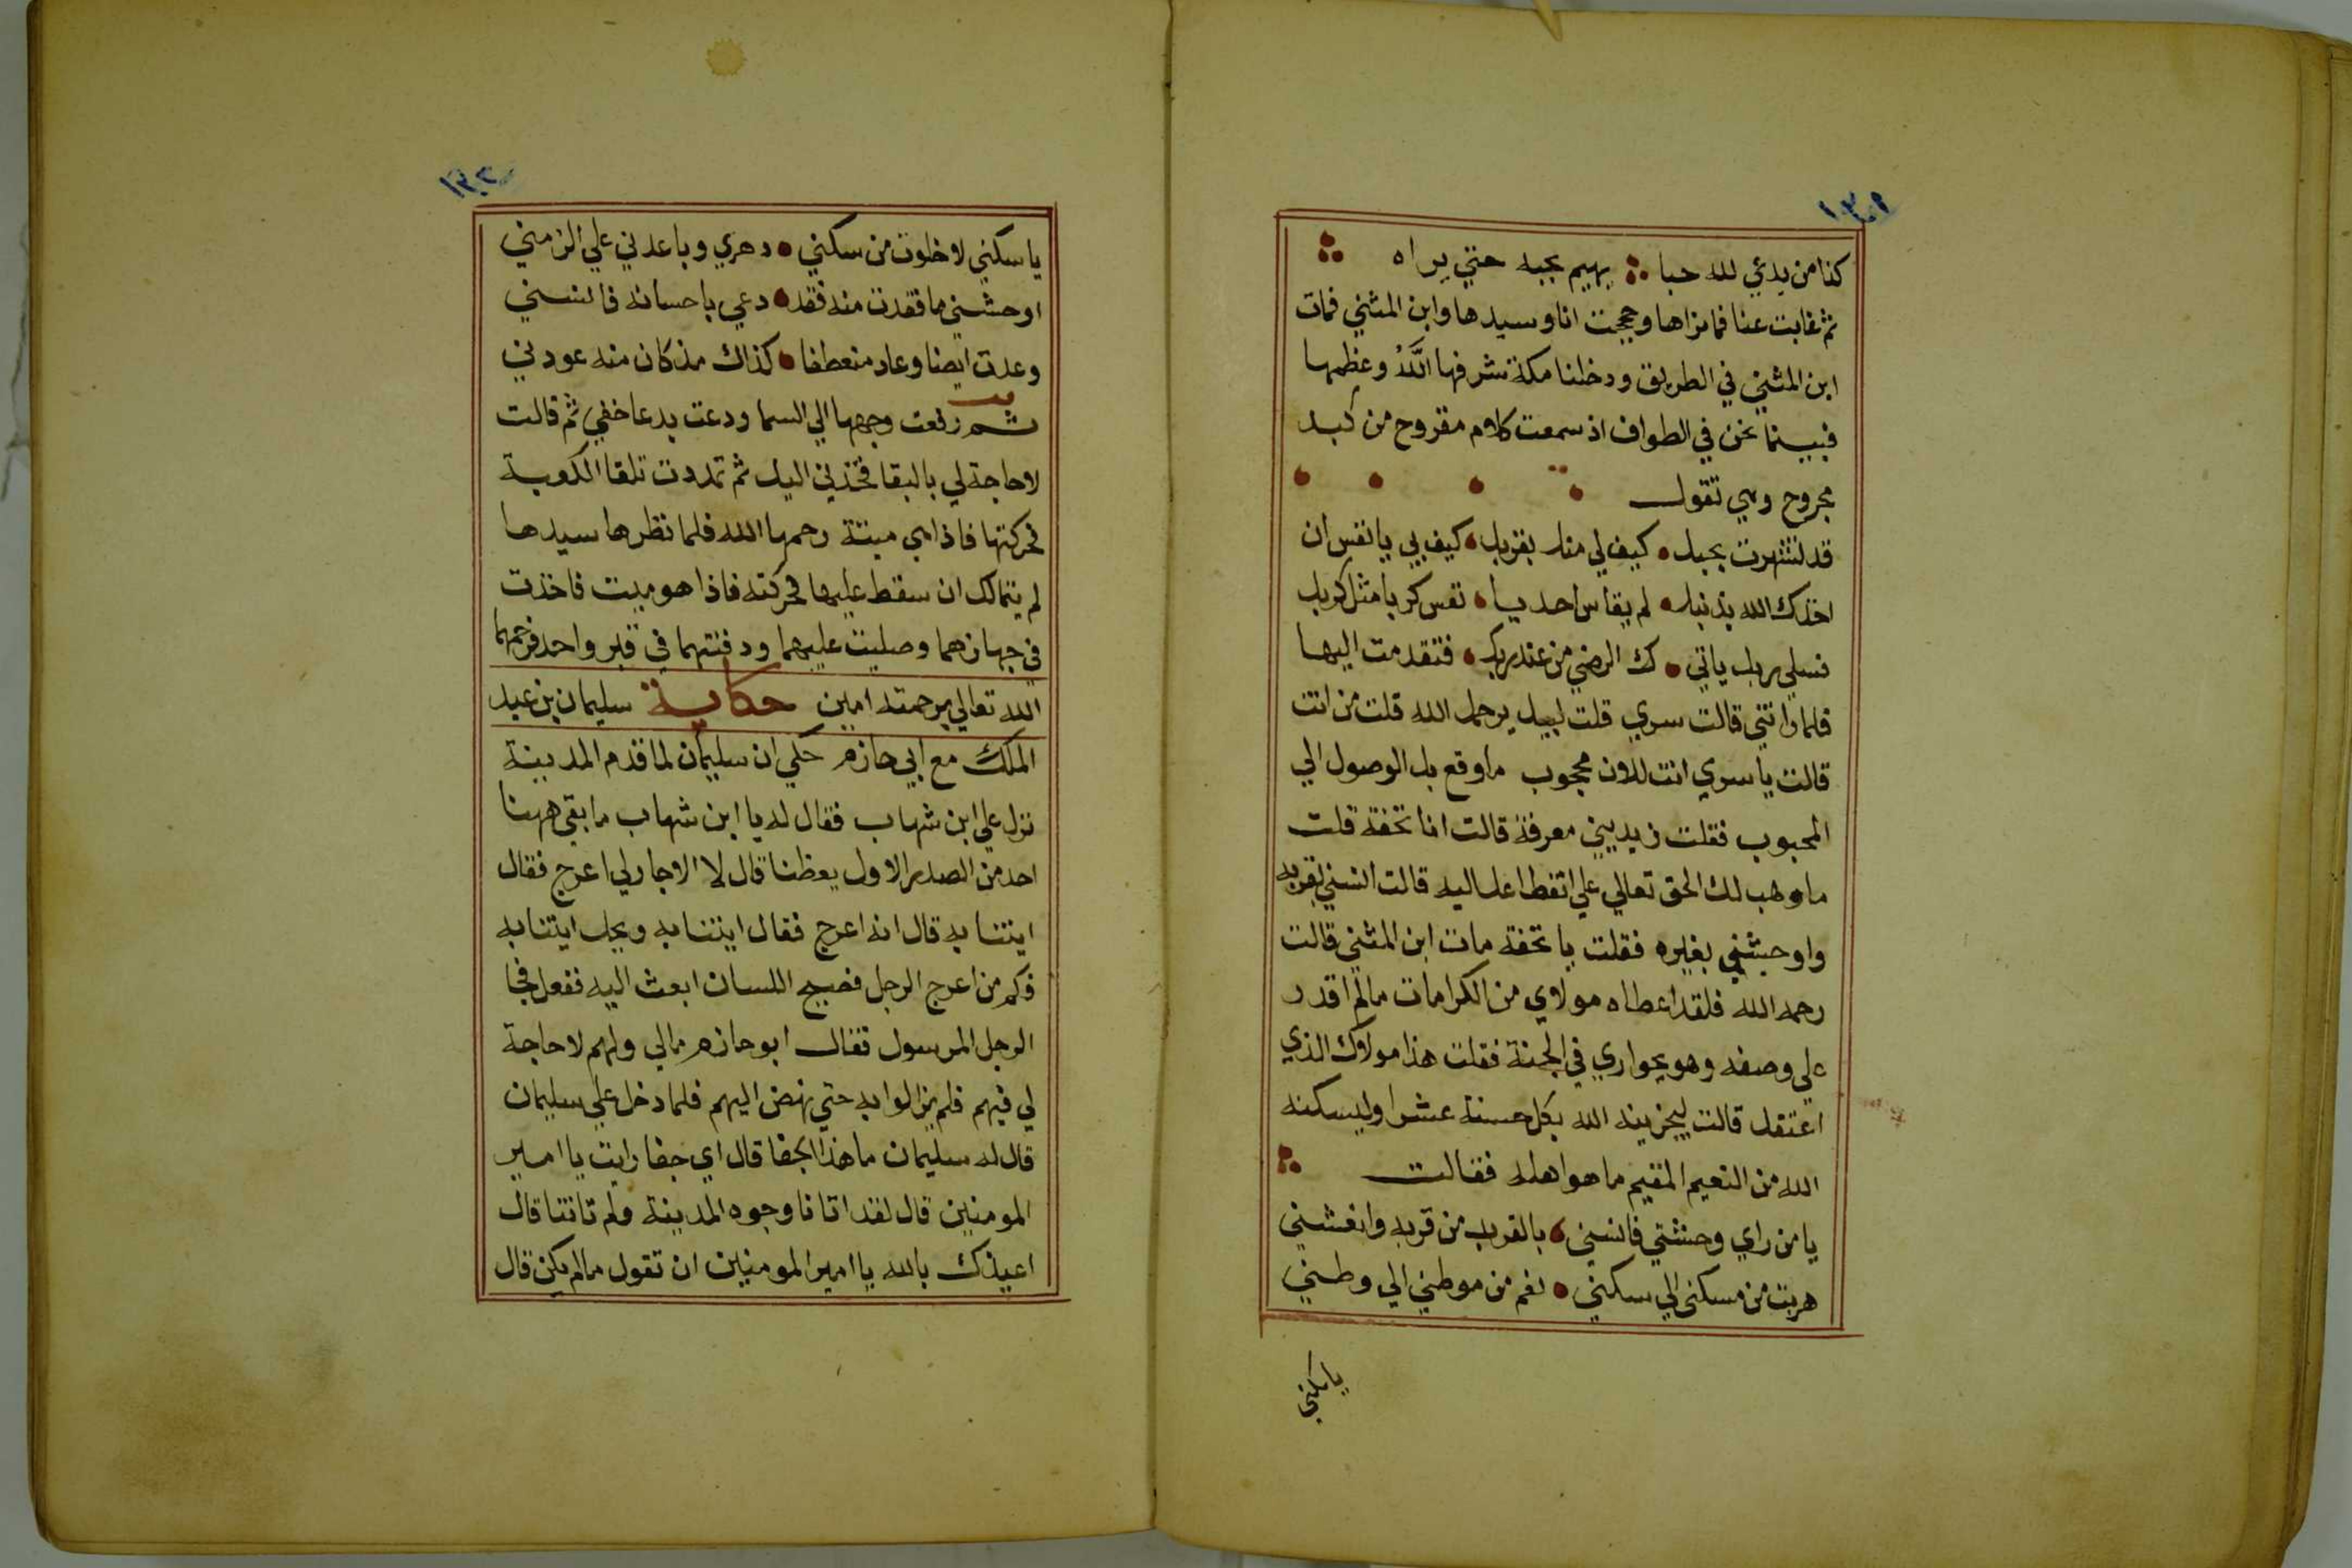 كذا من يدعي لله حبا يهيم بحبه حتي يراه
ثم غابت عنا فما نراها وحججت انا وسيدها وابن المثني فمات
ابن المثني في الطريق ودخلنا مكة شرفها الله وعظمها
فبينما نحن في الطواف اذ سمعت كلام مقروح من كبد
مجروح وهي تقول
قد اشتهرت بحبك كيف لي منك بقربك كيف بي يا نفس ان
اخذك الله بذنبك لم يقاس احد يا نفس كربا مثل كربك
فسلي ربك ياتي ك الرضي من عند ربك فتقدمت اليها
فلما راتني قالت سري قلت لبيك يرحمك الله قلت من انت
قالت يا سري انت للان محجوب ما وقع بك الوصول الي
المحبوب فقلت زيديني معرفة قالت انا تحفة قلت
ما وهب لك الحق تعالي علي انقطاعك اليه قالت انسني بقربه
واوحشني بغيره فقلت يا تحفة مات ابن المثني قالت
رحمه الله فلقد اعطاه مولاي من الكرامات ما لم اقدر
علي وصفه وهو بجواري في الجنة فقلت هذا مولاك الذي
اعتقك قالت ليجزينه الله بكل حسنة عشرا وليسكنه
الله من النعيم المقيم ما هو اهله فقالت
يا من راي وحشتي فانسني بالقرب من قربه وانعشني
هربت من مسكني الي سكني نعم من موطني الي وطني
يا سكني
١٣٢
يا سكني لا خلوت من سكني دهري وباعدني علي الزمني
اوحشني ما فقدت منه فقد دعي باحسانه فانسني
وعدت ايضا وعاد منعطفا كذاك مذ كان منه عودني
ثم رفعت وجهها الي السما ودعت بدعا خفي ثم قالت
لا حاجة لي بالبقا فخذني اليك ثم تمددت تلقا الكعبة
فحركتها فاذا هي ميتة رحمها الله فلما نظرها سيدها
لم يتمالك ان سقط عليها فحركته فاذا هو ميت فاخذت
في جهازهما وصليت عليهما ودفنتهما في قبر واحد فرحمهما
الله تعالي برحمته امين حكاية سليمان بن عبد
الملك مع ابي حازم حكي ان سليمان لما قدم المدينة
نزل علي ابن شهاب فقال له يا ابن شهاب ما بقي ههنا
احد من الصدر الاول يعظنا قال لا الا جار لي اعرج فقال
ايتنا به قال انه اعرج فقال ايتنا به ويحك ايتنا به
فكم من اعرج الرجل فصيح اللسان ابعث اليه ففعل فجا
الرجل المرسول فقال ابو حازم مالي ولهم لا حاجة
لي فيهم فلم يزالوا به حتي نهض اليهم فلما دخل علي سليمان
قال له سليمان ما هذا الجفا قال اي جفا رايت يا امير
المومنين قال لقد اتانا وجوه المدينة ولم تاتنا قال
اعيذك بالله يا امير المومنين ان تقول ما لم يكن قال